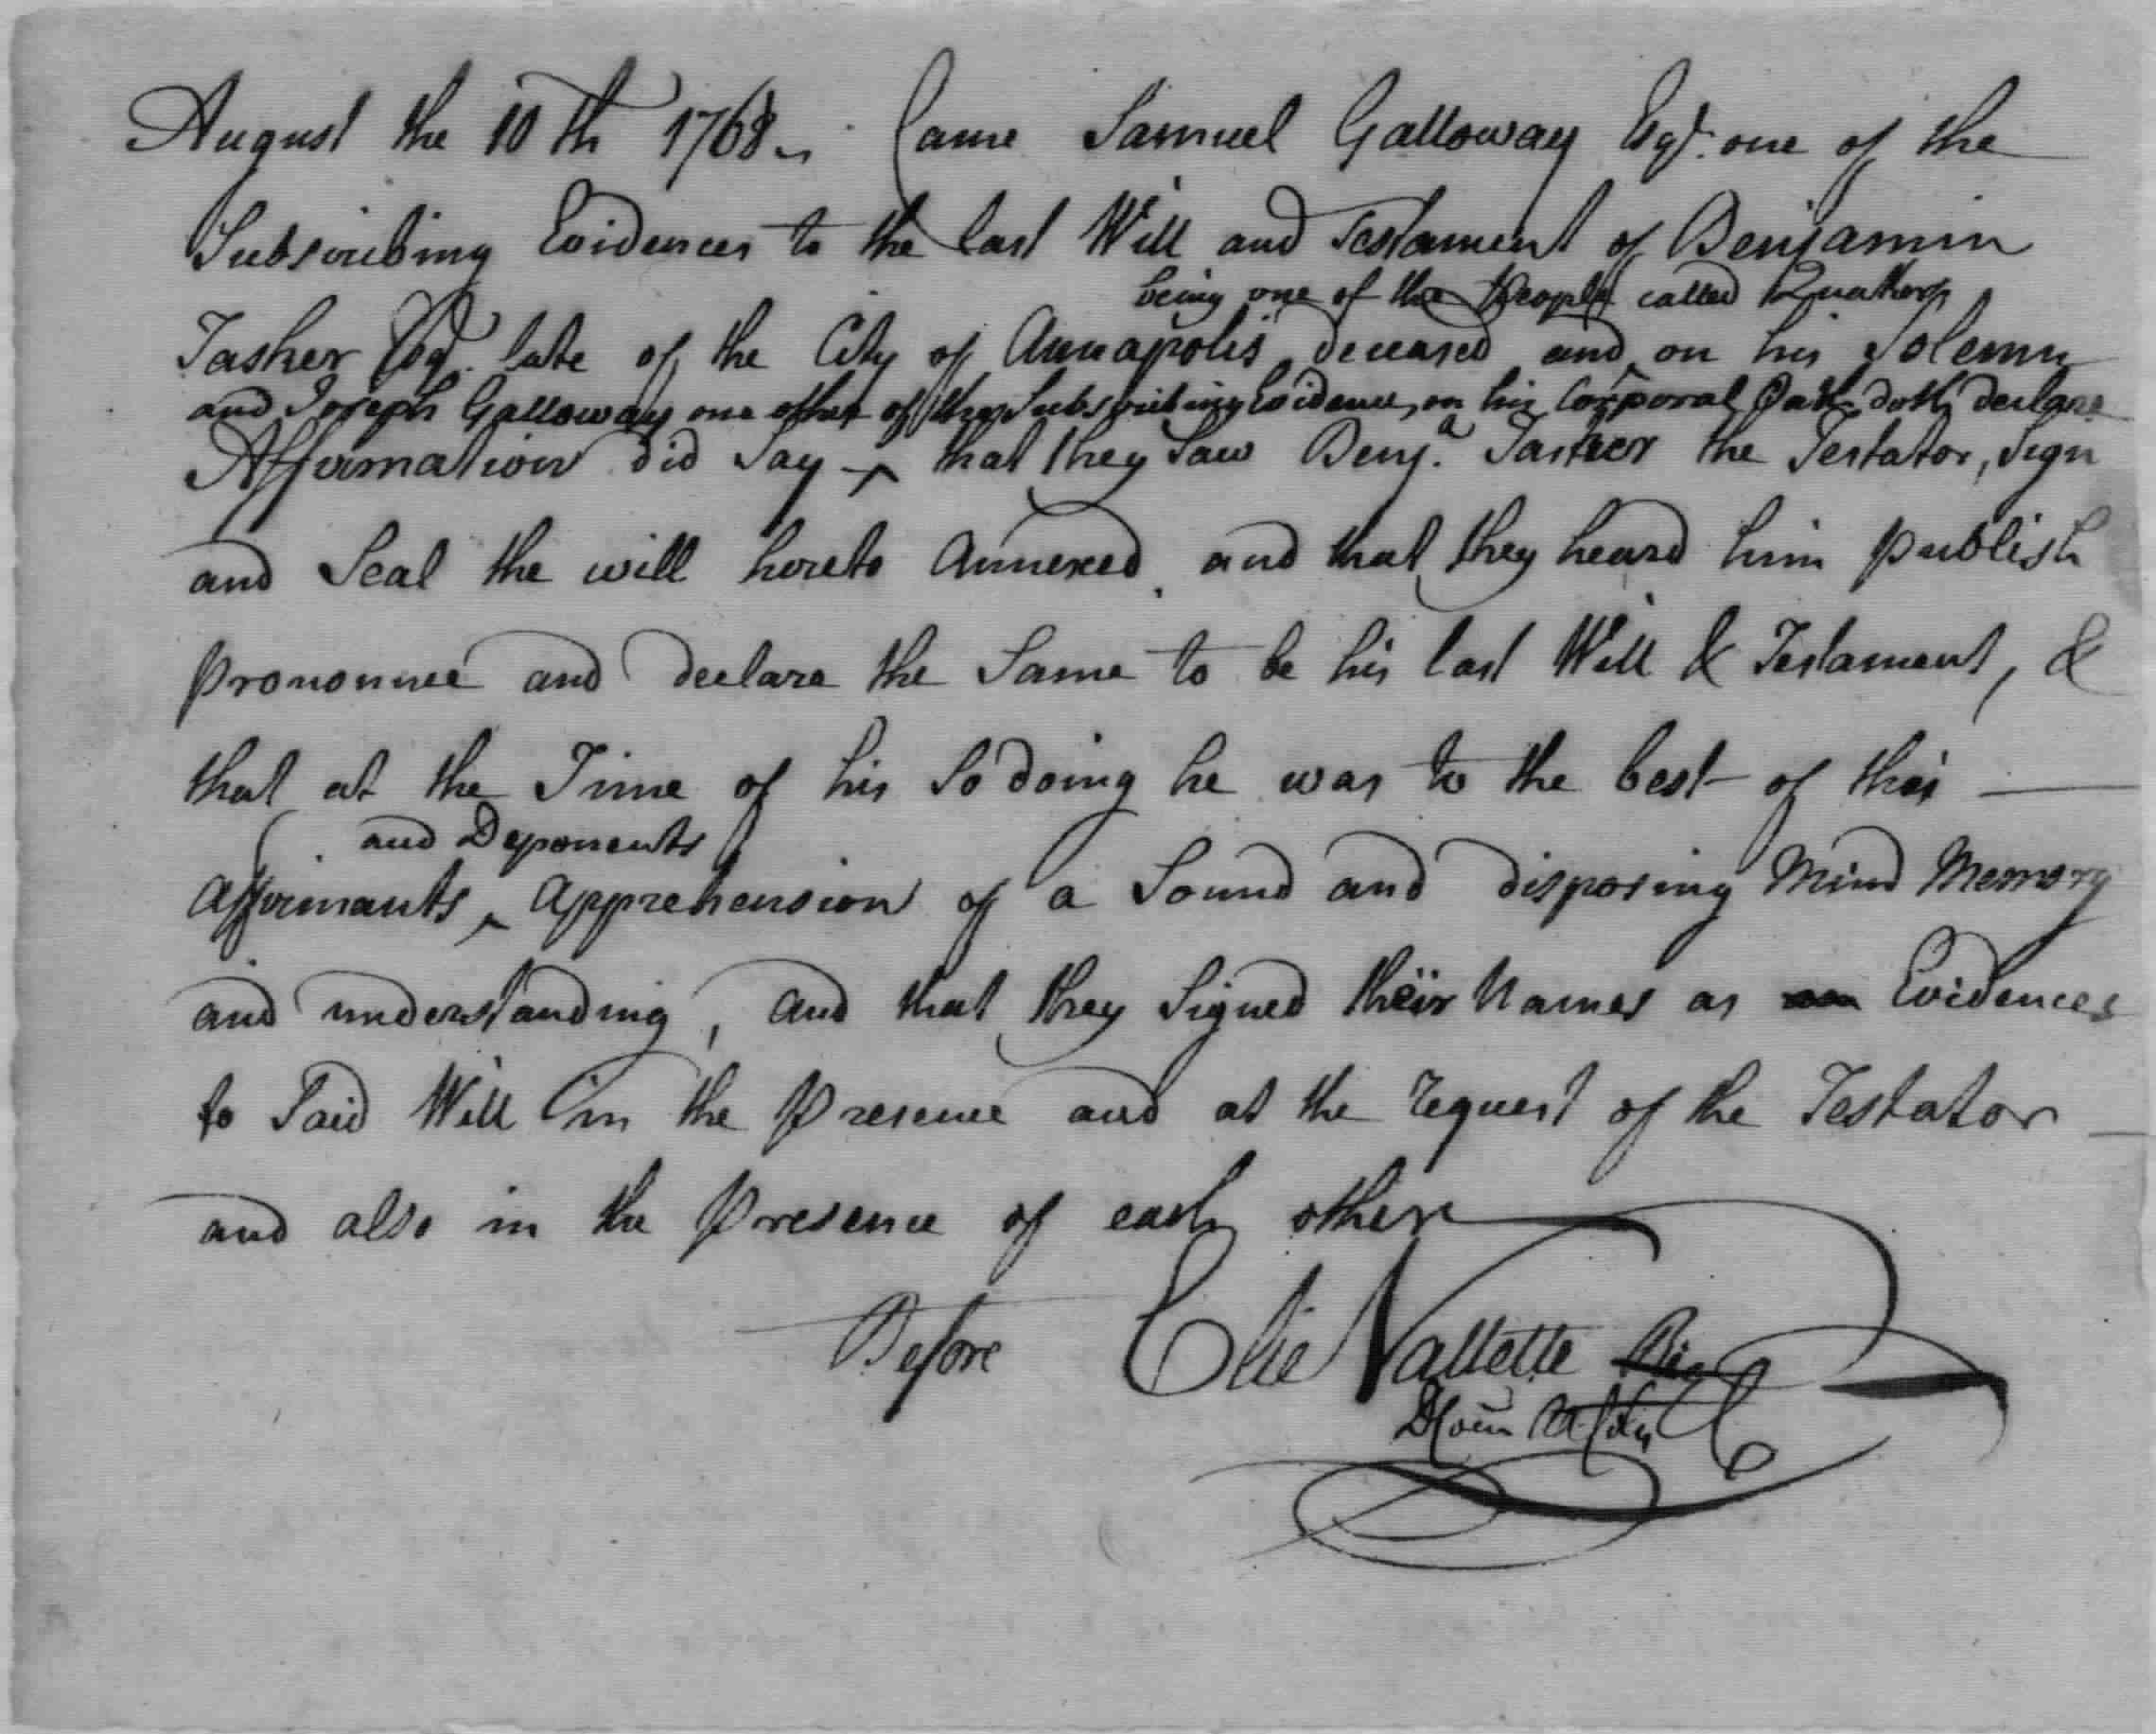 August the 10th 1768. Came Samuel Galloway Esqr. one of the
Subscribing Evidences to the last Will and Testament of Benjamin
being one of the People called Quakers
Tasher Esqr. late of the City of Annapolis deceased and ‸ on his Solemn
and Joseph Galloway one other of the Subscribing Evidence, on his Corporal Oath doth declare
Affirmation did Say ‸ that they Saw Benja. Tasker the Testator, Sign
and Seal the will hereto Annexed, and that they heard him publish
pronounce and declare the Same to be his last Will & Testament, &
that at the Time of his So doing he was to the best of their
and Deponents
Affirmants ‸ Apprehension of a Sound and disposing Mind Memory
and understanding, and that they Signed their Names as Evidences
to Said Will in the presence and at the request of the Testator
and also in the presence of each other
Before Elie Vallette